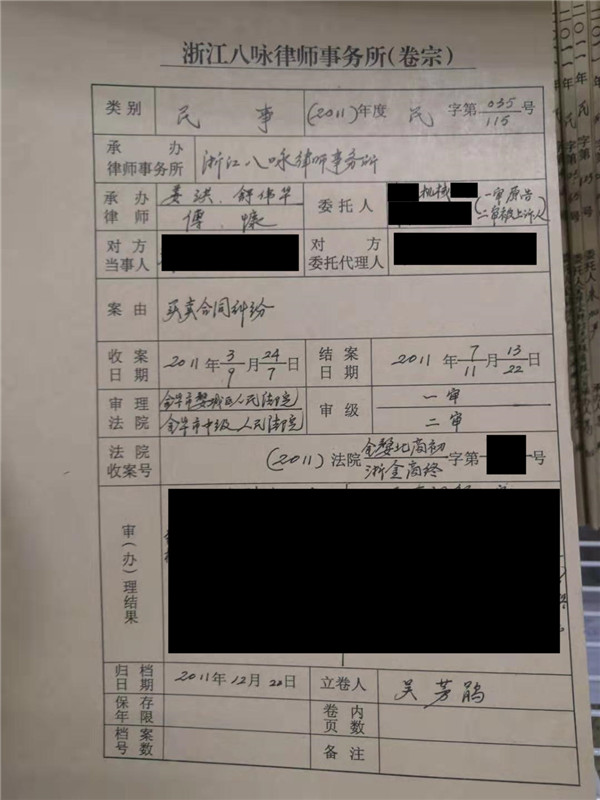 浙江八咏律师事务所(卷宗)
类别 民事 (2011)年度 民 字第 035/115 号
承办律师事务所 浙江八咏律师事务所
承办律师 姜洪、舒伟华 傅 委托人 机械 (一审原告 二审被上诉人)
对方当事人 对方委托代理人
案由 买卖合同纠纷
收案日期 2011年3/9月24/7日 结案日期 2011年7/11月13/22日
审理法院 金华市婺城区人民法院 审级 一审
金华市中级人民法院 二审
法院收案号 (2011)法院 金婺北商初 字第 号
浙金商终
审(办)理结果
归档日期 2011年12月22日 立卷人 吴芳鹃
保存年限 卷内页数
档案号数 备注